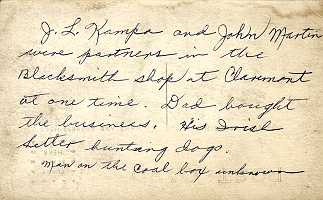 J. L. Kampa and John Martin
were partners in the
Blacksmith shop at Claremont
at one time. Dad bought
the business. His Irish
Setter hunting dogs.
Man on the coal box unknown